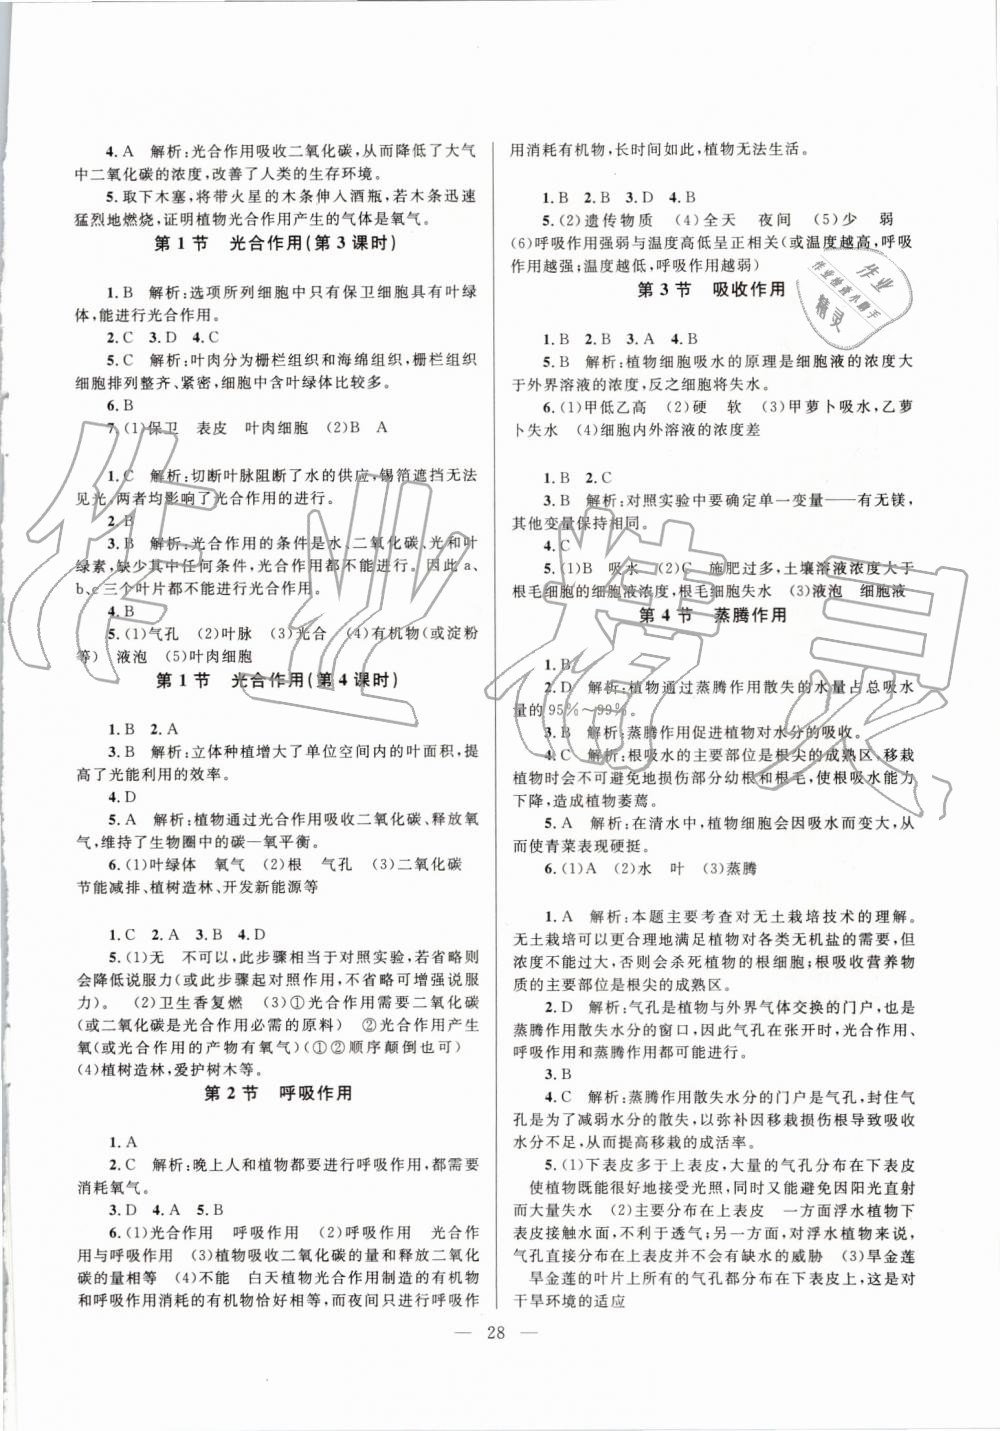 4. A　解析:光合作用吸收二氧化碳,从而降低了大气
中二氧化碳的浓度,改善了人类的生存环境。
5. 取下木塞,将带火星的木条伸入酒瓶,若木条迅速
猛烈地燃烧,证明植物光合作用产生的气体是氧气。
第1节　光合作用(第3课时)
1. B　解析:选项所列细胞中只有保卫细胞具有叶绿
体,能进行光合作用。
2. C　3. D　4. C
5. C　解析:叶肉分为栅栏组织和海绵组织,栅栏组织
细胞排列整齐、紧密,细胞中含叶绿体比较多。
6. B
7. (1)保卫　表皮　叶肉细胞　(2)B　A
1. C　解析:切断叶脉阻断了水的供应,锡箔遮挡无法
见光,两者均影响了光合作用的进行。
2. B
3. B　解析:光合作用的条件是水、二氧化碳、光和叶
绿素,缺少其中任何条件,光合作用都不能进行。因此a、
b、c三个叶片都不能进行光合作用。
4. B
5. (1)气孔　(2)叶脉　(3)光合　(4)有机物(或淀粉
等)　液泡　(5)叶肉细胞
第1节　光合作用(第4课时)
1. B　2. A
3. B　解析:立体种植增大了单位空间内的叶面积,提
高了光能利用的效率。
4. D
5. A　解析:植物通过光合作用吸收二氧化碳、释放氧
气,维持了生物圈中的碳—氧平衡。
6. (1)叶绿体　氧气　(2)根　气孔　(3)二氧化碳
节能减排、植树造林、开发新能源等
1. C　2. A　3. B　4. D
5. (1)无　不可以,此步骤相当于对照实验,若省略则
会降低说服力(或此步骤起对照作用,不省略可增强说服
力)。　(2)卫生香复燃　(3)①光合作用需要二氧化碳
(或二氧化碳是光合作用必需的原料)　②光合作用产生
氧(或光合作用的产物有氧气)(①②顺序颠倒也可)
(4)植树造林,爱护树木等。
第2节　呼吸作用
1. A
2. C　解析:晚上人和植物都要进行呼吸作用,都需要
消耗氧气。
3. D　4. A　5. B
6. (1)光合作用　呼吸作用　(2)呼吸作用　光合作
用与呼吸作用　(3)植物吸收二氧化碳的量和释放二氧化
碳的量相等　(4)不能　白天植物光合作用制造的有机物
和呼吸作用消耗的有机物恰好相等,而夜间只进行呼吸作
用消耗有机物,长时间如此,植物无法生活。
1. B　2. B　3. D　4. B
5. (2)遗传物质　(4)全天　夜间　(5)少　弱
(6)呼吸作用强弱与温度高低呈正相关(或温度越高,呼吸
作用越强;温度越低,呼吸作用越弱)
第3节　吸收作用
1. B　2. B　3. A　4. B
5. B　解析:植物细胞吸水的原理是细胞液的浓度大
于外界溶液的浓度,反之细胞将失水。
6. (1)甲低乙高　(2)硬　软　(3)甲萝卜吸水,乙萝
卜失水　(4)细胞内外溶液的浓度差
1. B　2. C
3. B　解析:对照实验中要确定单一变量——有无镁,
其他变量保持相同。
4. C
5. (1)B　吸水　(2)C　施肥过多,土壤溶液浓度大于
根毛细胞的细胞液浓度,根毛细胞失水　(3)液泡　细胞液
第4节　蒸腾作用
1. B
2. D　解析:植物通过蒸腾作用散失的水量占总吸水
量的95%～99%。
3. B　解析:蒸腾作用促进植物对水分的吸收。
4. C　解析:根吸水的主要部位是根尖的成熟区,移栽
植物时会不可避免地损伤部分幼根和根毛,使根吸水能力
下降,造成植物萎蔫。
5. A　解析:在清水中,植物细胞会因吸水而变大,从
而使青菜表现硬挺。
6. (1)A　(2)水　叶　(3)蒸腾
1. A　解析:本题主要考查对无土栽培技术的理解。
无土栽培可以更合理地满足植物对各类无机盐的需要,但
浓度不能过大,否则会杀死植物的根细胞;根吸收营养物
质的主要部位是根尖的成熟区。
2. D　解析:气孔是植物与外界气体交换的门户,也是
蒸腾作用散失水分的窗口,因此气孔在张开时,光合作用、
呼吸作用和蒸腾作用都可能进行。
3. B
4. C　解析:蒸腾作用散失水分的门户是气孔,封住气
孔是为了减弱水分的散失,以弥补因移栽损伤根导致吸收
水分不足,从而提高移栽的成活率。
5. (1)下表皮多于上表皮,大量的气孔分布在下表皮
使植物既能很好地接受光照,同时又能避免因阳光直射
而大量失水　(2)主要分布在上表皮　一方面浮水植物下
表皮接触水面,不利于透气;另一方面,对浮水植物来说,
气孔直接分布在上表皮并不会有缺水的威胁　(3)旱金莲
旱金莲的叶片上所有的气孔都分布在下表皮,这是对
干旱环境的适应
— 28 —
作业精灵
作业
作业检查小助手
精灵